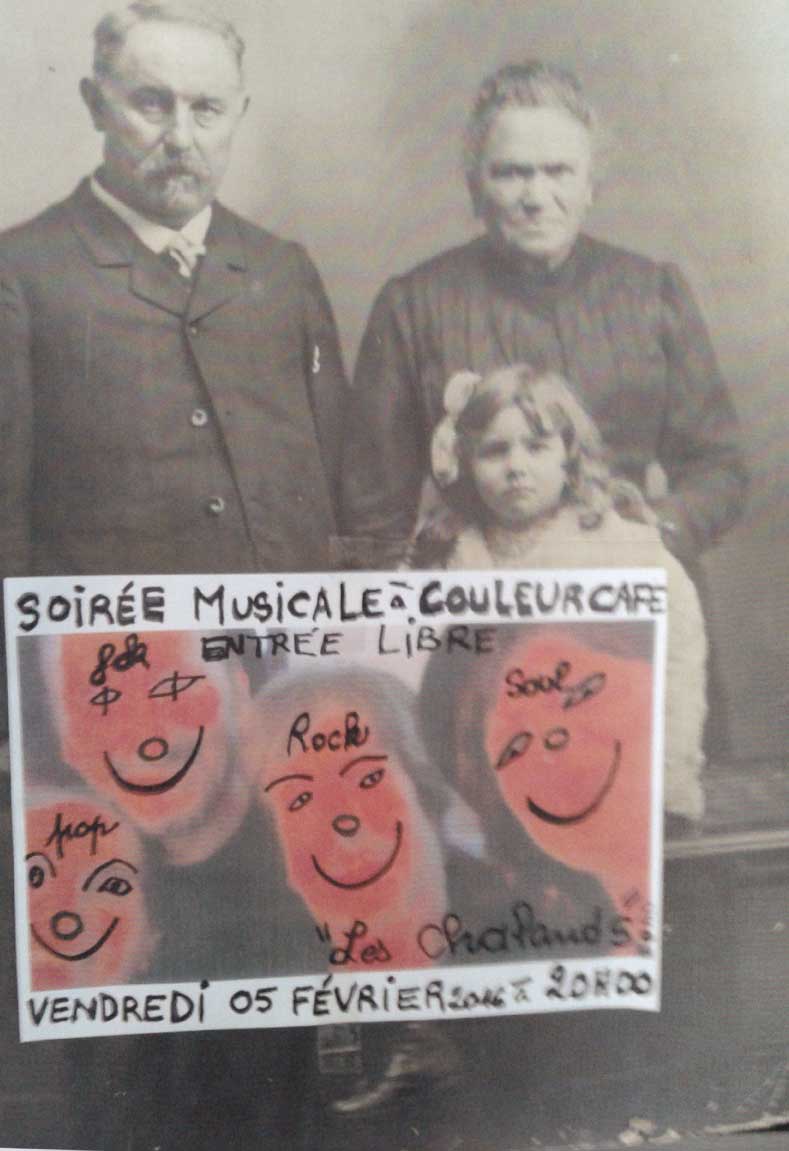 SOIRÉE MUSICALE à COULEUR CAFE
ENTRÉE LIBRE
folk
Soul
Rock
pop
"Les Chalands"...
VENDREDI 05 FÉVRIER 2016 à 20H00